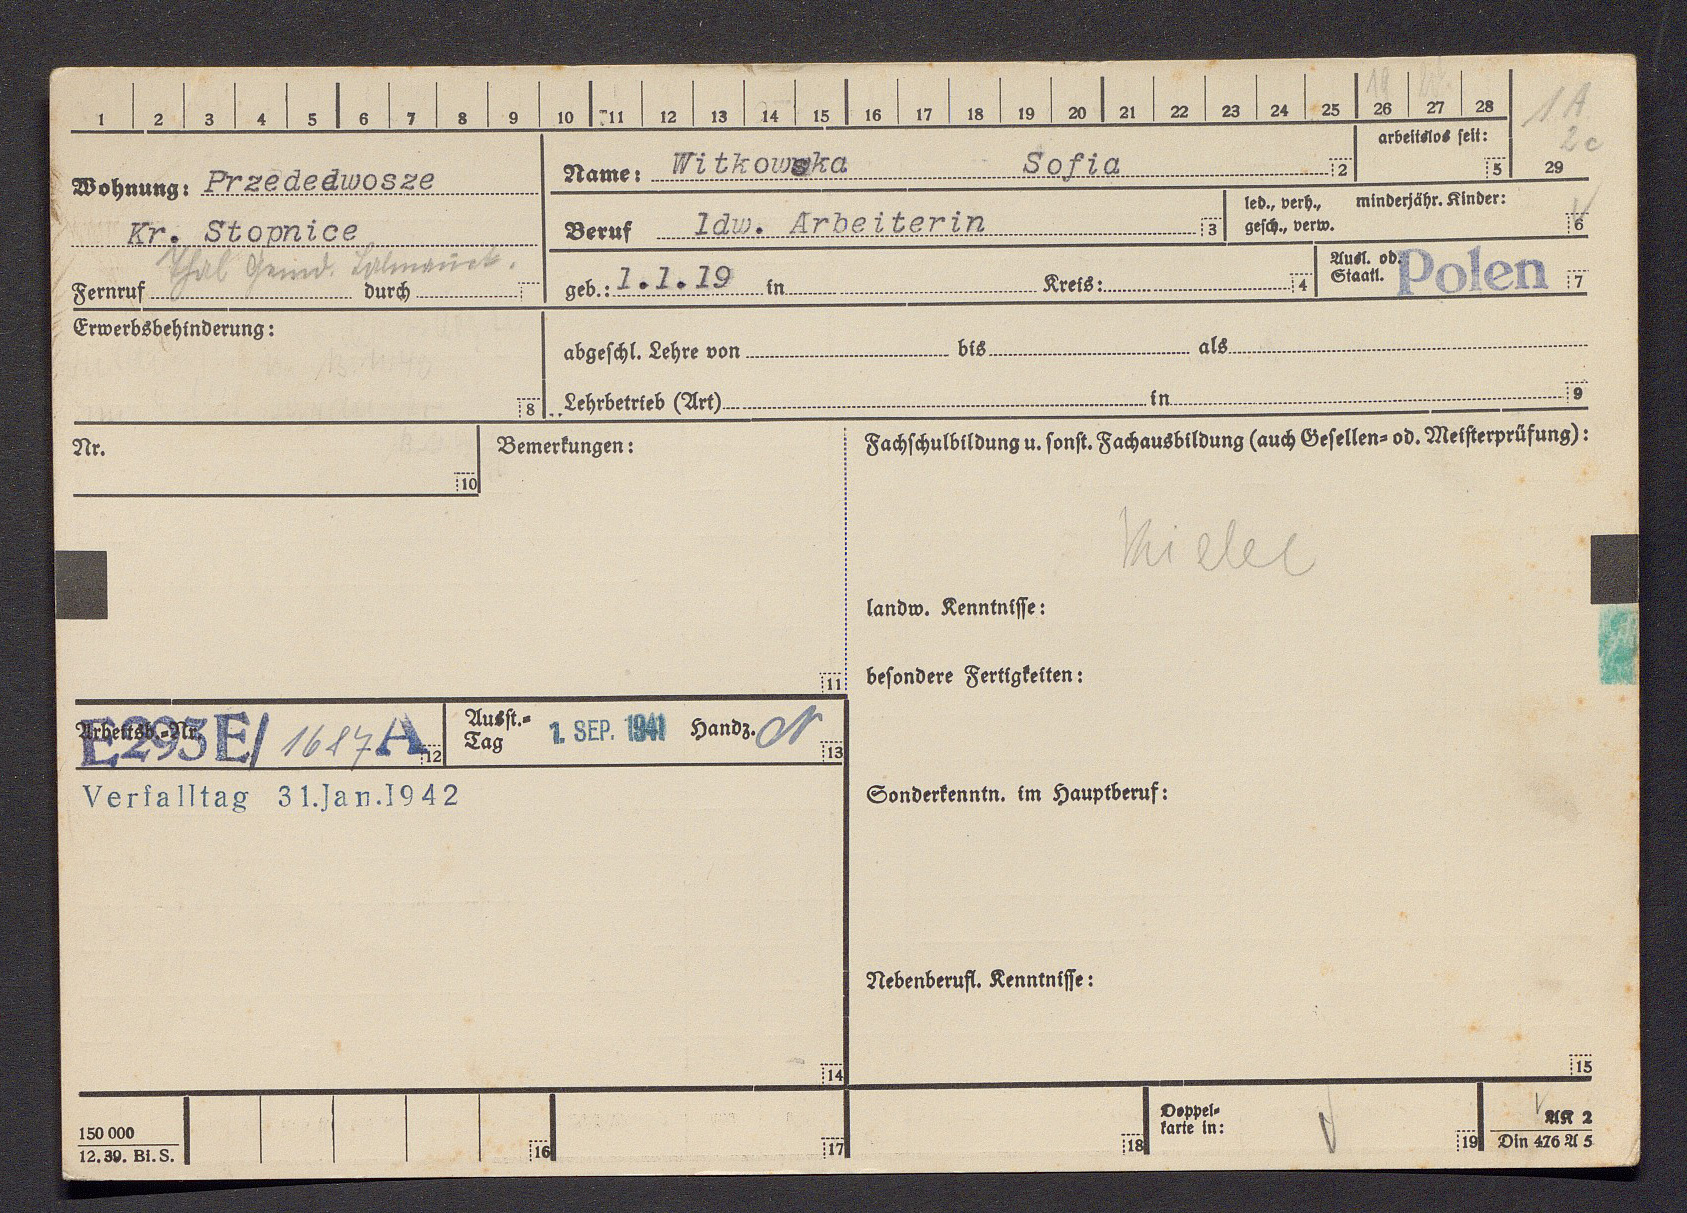 1 2 3 4 5 6 7 8 9 10 11 12 13 14 15 16 17 18 19 20 21 22 23 24 25 26 27 28
1 A
2 c
29
arbeitslos seit:
5
Wohnung: Przededwosze
Kr. Stopnice
Fernruf durch
Name: Witkowska Sofia 2
Beruf ldw. Arbeiterin 3
led., verh., minderjähr. Kinder:
gesch., verw. 6
geb.: 1.1.19 in Kreis: 4
Ausl. od. Staatl. Polen 7
Erwerbsbehinderung:
8
abgeschl. Lehre von bis als
Lehrbetrieb (Art) in 9
Nr.
10
Bemerkungen:
11
Fachschulbildung u. sonst. Fachausbildung (auch Gesellen= od. Meisterprüfung):
landw. Kenntnisse:
besondere Fertigkeiten:
Sonderkenntn. im Hauptberuf:
Nebenberufl. Kenntnisse:
15
Arbeitsb.=Nr.
E293E/ 1687 A 12
Ausst.=Tag 1. SEP. 1941 Handz. 13
Verfalltag 31.Jan.1942
14
150 000
12. 39. Bi. S.
16
17
18
Doppel=
karte in:
19
AK 2
Din 476 A 5